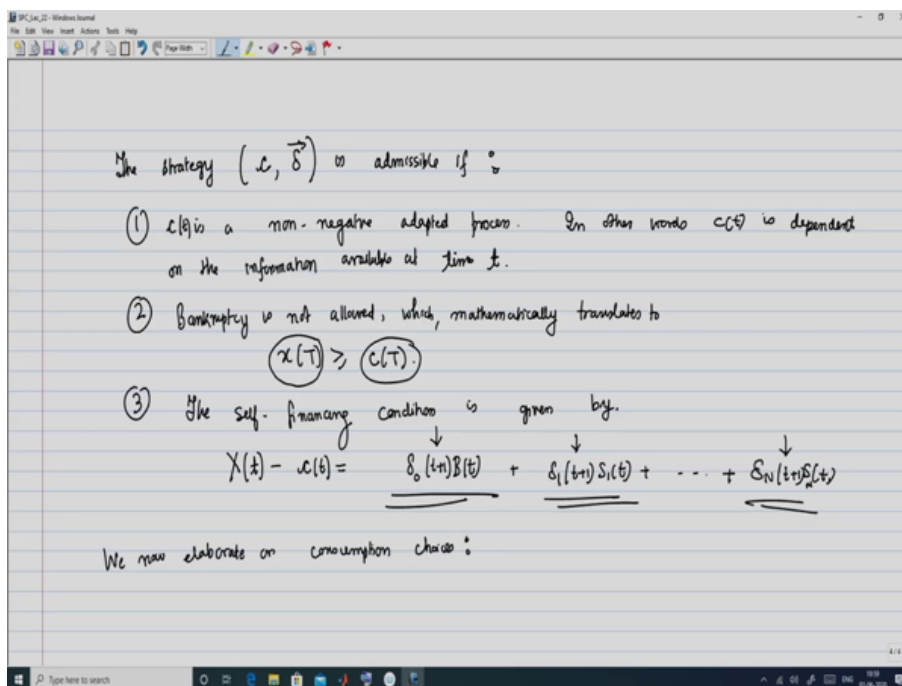 SPC_Lec_22 - Windows Journal
File Edit View Insert Actions Tools Help
Page Width
The strategy (c, δ⃗) is admissible if :
① c(t) is a non-negative adapted process. In other words c(t) is dependent
on the information available at time t.
② Bankruptcy is not allowed, which, mathematically translates to
X(T) ≥ c(T).
③ The self-financing condition is given by.
↓ ↓ ↓
X(t) - c(t) = δ₀(t+1)B(t) + δ₁(t+1)S₁(t) + ... + δ_N(t+1)S_N(t)
We now elaborate on consumption choices :
4/4
Type here to search
ENG